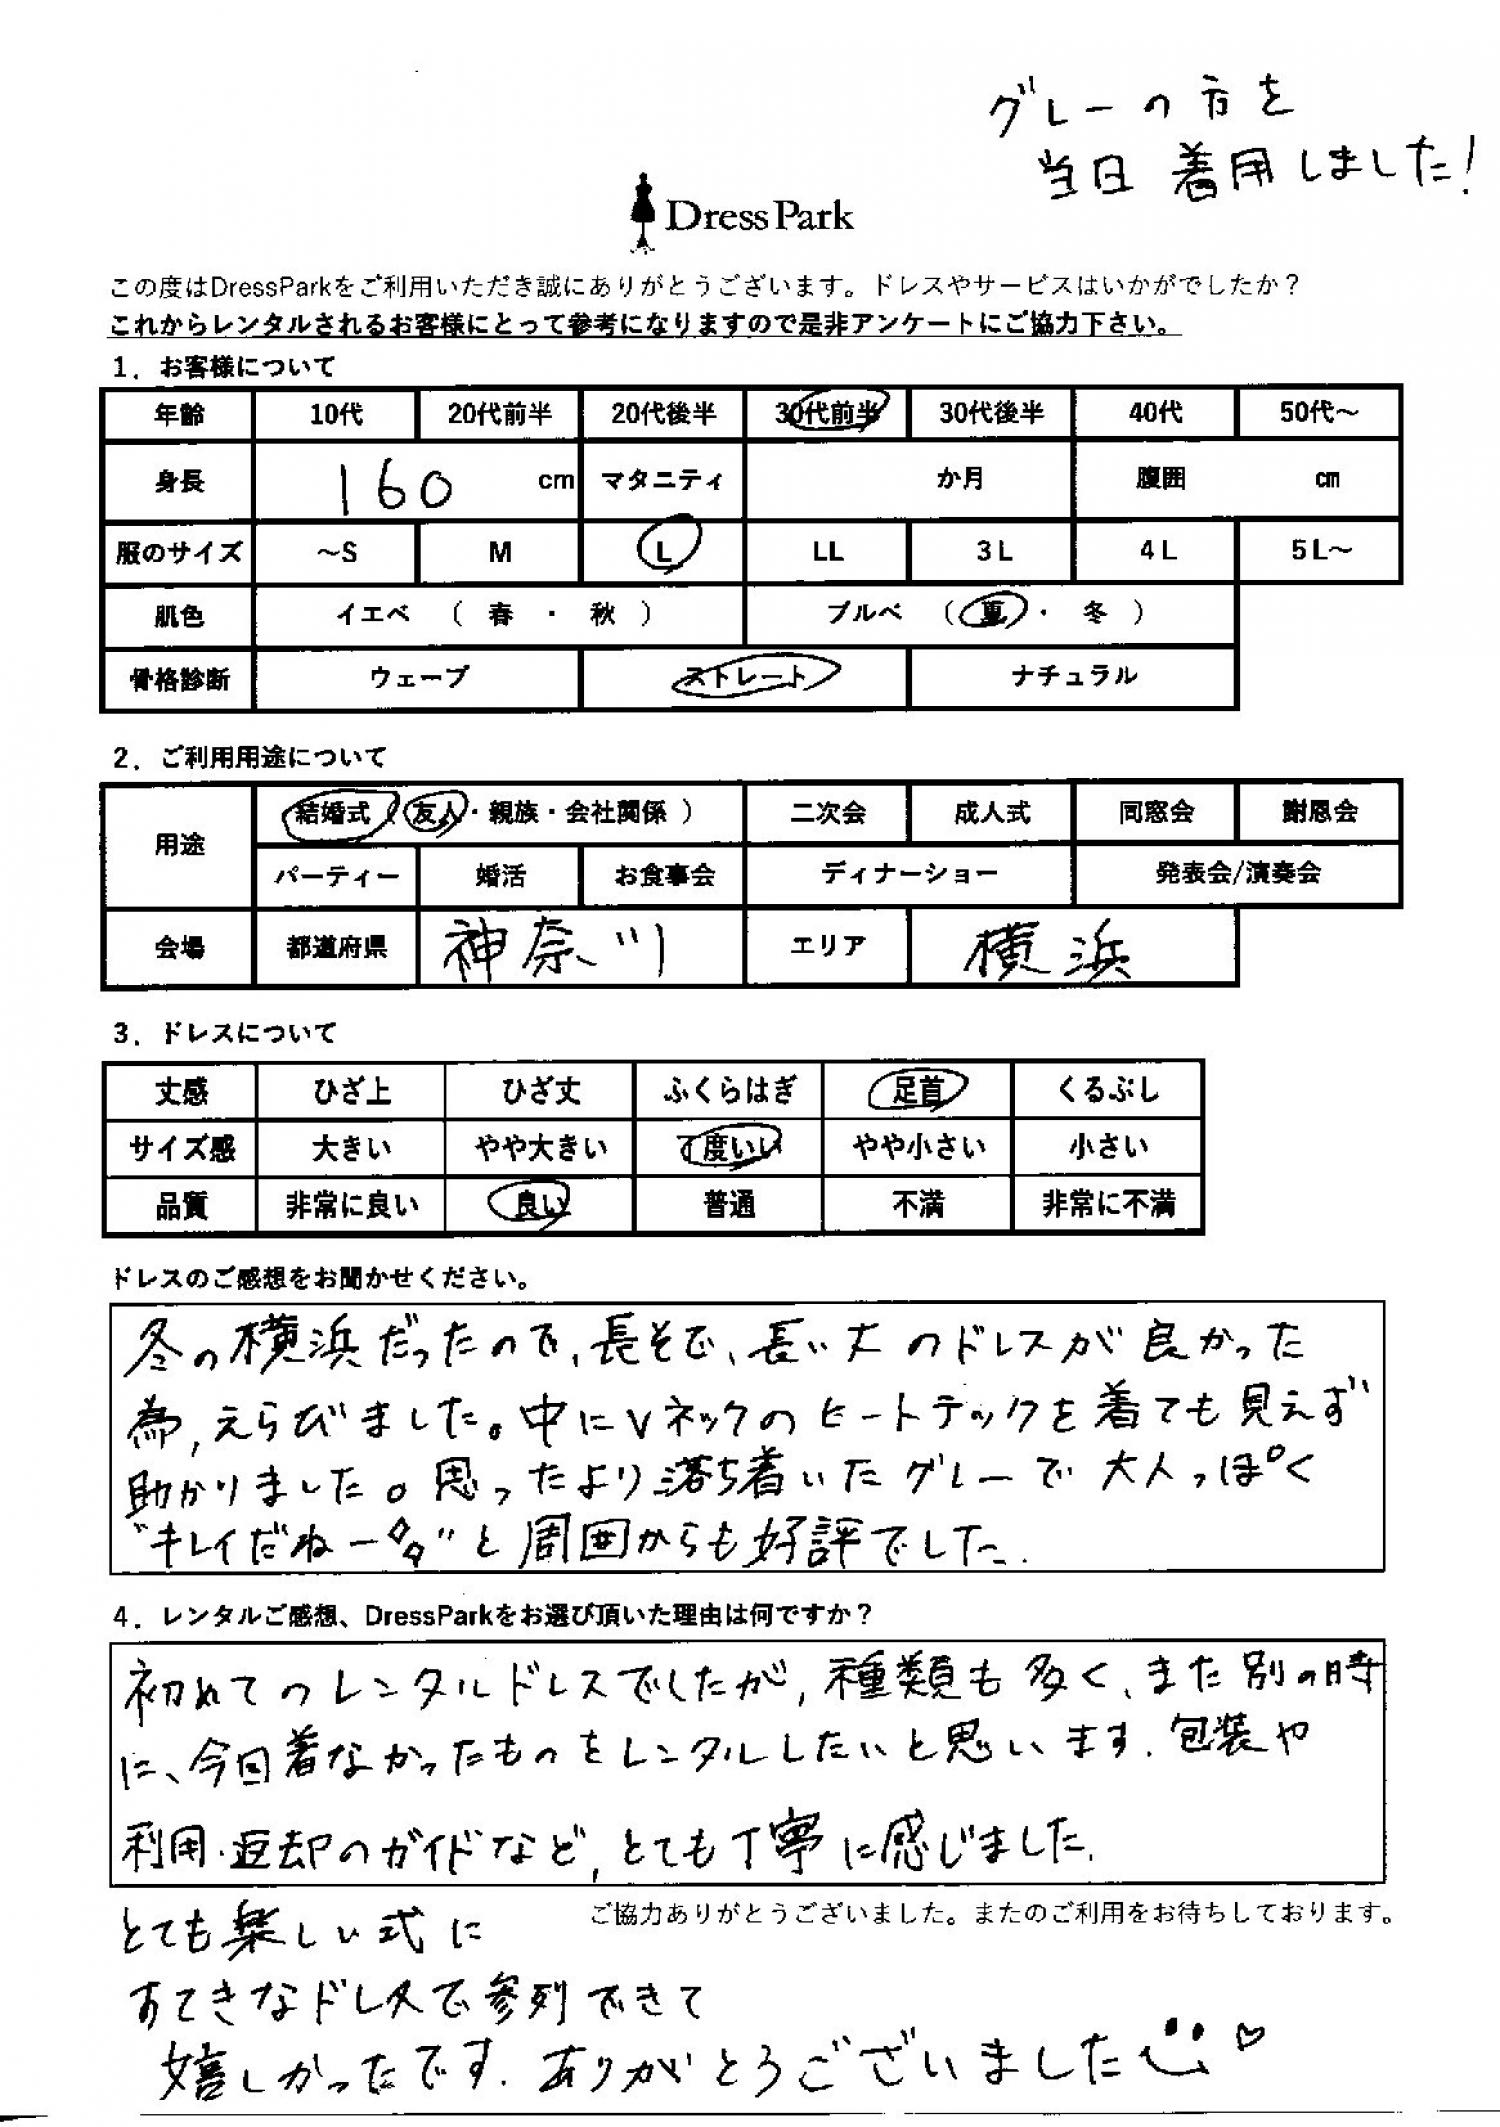 グレーの方を
当日着用しました!
DressPark
この度はDressParkをご利用いただき誠にありがとうございます。ドレスやサービスはいかがでしたか?
これからレンタルされるお客様にとって参考になりますので是非アンケートにご協力下さい。
1.お客様について
年齢 10代 20代前半 20代後半 30代前半 30代後半 40代 50代～
身長 160 cm マタニティ か月 腹囲 cm
服のサイズ ～S M L LL 3L 4L 5L～
肌色 イエベ ( 春 ・ 秋 ) ブルベ ( 夏 ・ 冬 )
骨格診断 ウェーブ ストレート ナチュラル
2.ご利用用途について
用途 結婚式(友人・親族・会社関係) 二次会 成人式 同窓会 謝恩会
パーティー 婚活 お食事会 ディナーショー 発表会/演奏会
会場 都道府県 神奈川 エリア 横浜
3.ドレスについて
丈感 ひざ上 ひざ丈 ふくらはぎ 足首 くるぶし
サイズ感 大きい やや大きい 丁度いい やや小さい 小さい
品質 非常に良い 良い 普通 不満 非常に不満
ドレスのご感想をお聞かせください。
冬の横浜だったので、長そで、長い丈のドレスが良かった
為,えらびました。中にVネックのヒートテックを着ても見えず
助かりました。思ったより落ち着いたグレーで大人っぽく
"キレイだねー"と周囲からも好評でした.
4.レンタルご感想、DressParkをお選び頂いた理由は何ですか?
初めてのレンタルドレスでしたが,種類も多く、また別の時
に、今回着なかったものをレンタルしたいと思います.包装や
利用・返却のガイドなど,とても丁寧に感じました.
ご協力ありがとうございました。またのご利用をお待ちしております。
とても楽しい式に
すてきなドレスで参列できて
嬉しかったです.ありがとうございました